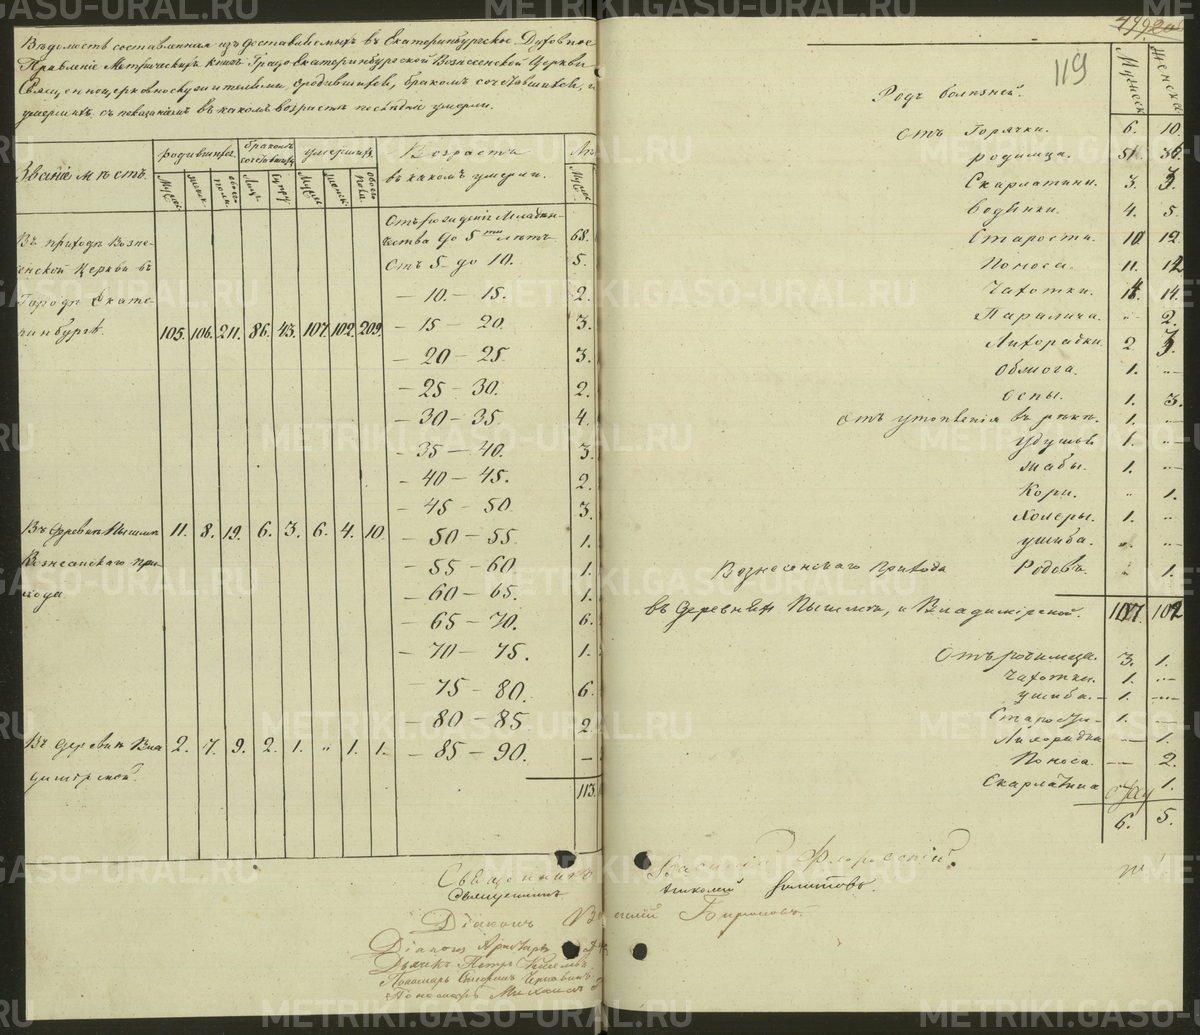 Вѣдомость составленная изъ доставляемыхъ въ Екатеринбургское Духовное
Правленіе Метрическихъ книгъ Градо Екатеринбургской Вознесенской Церкви
Священноцерковнослужителями о родившихся, бракомъ сочетавшихся, и
умершихъ съ показаніемъ въ какомъ возрастѣ послѣдніе умерли.
Званіе мѣстъ.
родившихся
бракомъ сочетавшихся
умершихъ
Возрастъ въ какомъ умерли.
Муж. женск. обоего пола. Лицъ. Супру. Муж. женск. обоего пола. Мужес
Въ приходѣ Возне-
сенской Церкви въ
Городѣ Екате-
ринбургѣ. 105. 106. 211. 86. 43. 107. 102. 209.
Отъ рожденія Младен-
чества до 5ти лѣтъ 68.
Отъ 5. до 10. 5.
— 10. — 15. 2.
— 15 — 20. 3.
— 20 — 25. 3.
— 25 — 30. 2.
— 30 — 35. 4.
— 35 — 40. 3.
— 40 — 45. 2.
— 45 — 50. 3.
— 50 — 55. 1.
— 55 — 60. 1.
— 60 — 65. 1.
— 65 — 70. 6.
— 70 — 75. 1.
— 75 — 80. 6.
— 80 — 85 2.
— 85 — 90. —
113.
Въ деревнѣ Пышмѣ 11. 8. 19. 6. 3. 6. 4. 10.
Вознесенскаго при
хода
Въ деревнѣ Вла 2. 7. 9. 2. 1. „ 1. 1.
димірской.
119
Родъ болѣзней. Мужеск Женска
Отъ Горячки. 6. 10.
родимца. 51. 36.
Скарлатины. 3. 3.
Водянки. 4. 5.
Старости. 10. 12.
Поноса. 11. 12
Чахотки. 14.
Паралича. „ 2.
Лихорадки. 2 3.
Обжога. 1. „
оспы. 1. 3.
отъ утопленія въ рѣкѣ. 1. „
удушья 1. „
жабы. 1. „
Кори. „ 1.
Холеры. 1. „
ушиба. „ „
Родовъ. „ 1.
107 102
Вознесенскаго прихода
въ деревняхъ Пышмѣ, и Владимірской.
Отъ родимца. 3. 1.
Чахотки. 1. —
ушиба. — 1. —
Старости — 1. —
Лихорадки — 1.
Поноса. — 2.
Скарлатина 1.
6. 5.
Священникъ Василій Флоровскій.
Священникъ Николай
Діаконъ Василій Бирюковъ.
Діаконъ
Дьячекъ Петръ
Пономарь
Пономарь Михаилъ
METRIKI.GASO-URAL.RU